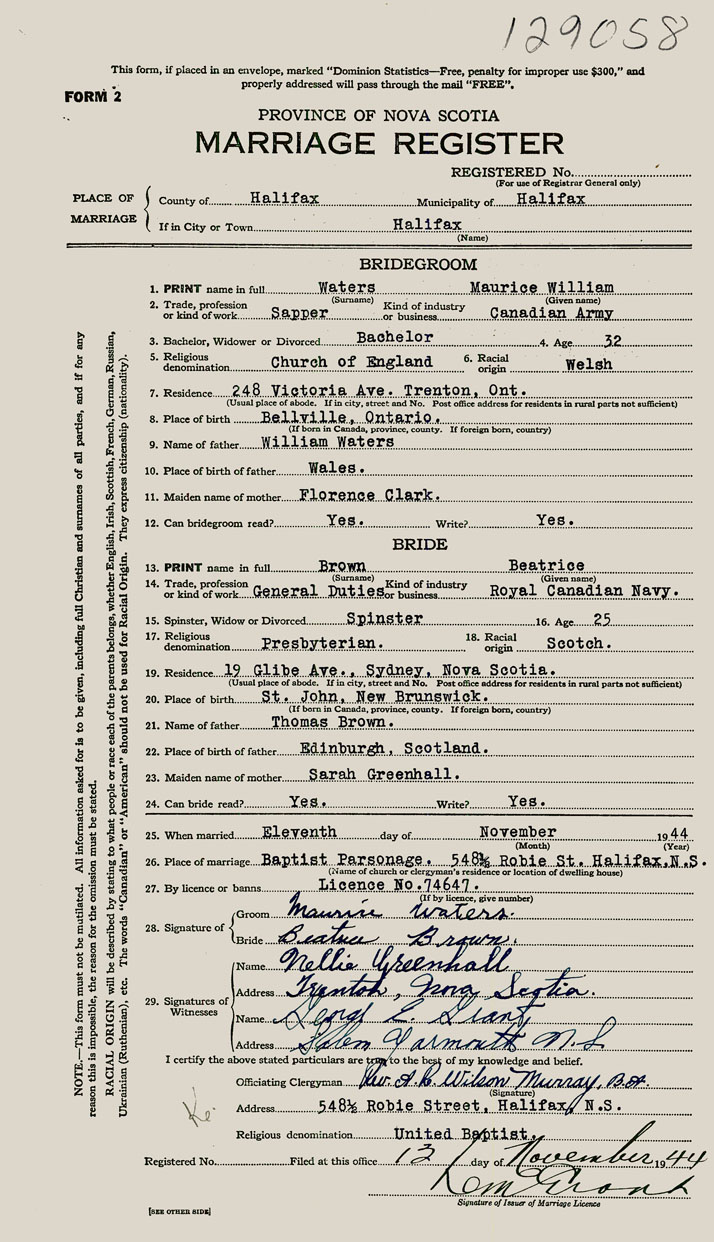 129058
This form, if placed in an envelope, marked "Dominion Statistics—Free, penalty for improper use $300," and
properly addressed will pass through the mail "FREE".
FORM 2
PROVINCE OF NOVA SCOTIA
MARRIAGE REGISTER
REGISTERED No.
(For use of Registrar General only)
PLACE OF MARRIAGE
County of Halifax Municipality of Halifax
If in City or Town Halifax
(Name)
BRIDEGROOM
1. PRINT name in full Waters Maurice William
(Surname) (Given name)
2. Trade, profession or kind of work Sapper Kind of industry or business Canadian Army
3. Bachelor, Widower or Divorced Bachelor 4. Age 32
5. Religious denomination Church of England 6. Racial origin Welsh
7. Residence 248 Victoria Ave. Trenton, Ont.
(Usual place of abode. If in city, street and No. Post office address for residents in rural parts not sufficient)
8. Place of birth Bellville, Ontario.
(If born in Canada, province, county. If foreign born, country)
9. Name of father William Waters
10. Place of birth of father Wales.
11. Maiden name of mother Florence Clark.
12. Can bridegroom read? Yes. Write? Yes.
BRIDE
13. PRINT name in full Brown Beatrice
(Surname) (Given name)
14. Trade, profession or kind of work General Duties Kind of industry or business Royal Canadian Navy.
15. Spinster, Widow or Divorced Spinster 16. Age 25
17. Religious denomination Presbyterian. 18. Racial origin Scotch.
19. Residence 19 Glibe Ave., Sydney, Nova Scotia.
(Usual place of abode. If in city, street and No. Post office address for residents in rural parts not sufficient)
20. Place of birth St. John, New Brunswick.
(If born in Canada, province, county. If foreign born, country)
21. Name of father Thomas Brown.
22. Place of birth of father Edinburgh, Scotland.
23. Maiden name of mother Sarah Greenhall.
24. Can bride read? Yes. Write? Yes.
25. When married Eleventh day of November 1944
(Month) (Year)
26. Place of marriage Baptist Parsonage. 548½ Robie St. Halifax, N.S.
(Name of church or clergyman's residence or location of dwelling house)
27. By licence or banns Licence No. 74647.
(If by licence, give number)
28. Signature of
Groom Maurice Waters.
Bride Beatrice Brown.
29. Signatures of Witnesses
Name Nellie Greenhall
Address Trenton, Nova Scotia.
Name George E. Grant
Address Salem Yarmouth N.S.
I certify the above stated particulars are true to the best of my knowledge and belief.
Officiating Clergyman Rev. A. C. Wilson Murray, B.A.
(Signature)
Address 548½ Robie Street, Halifax, N.S.
Religious denomination United Baptist.
Registered No. Filed at this office 13 day of November 1944
Signature of Issuer of Marriage Licence
[SEE OTHER SIDE]
NOTE.—This form must not be mutilated. All information asked for is to be given, including full Christian and surnames of all parties, and if for any
reason this is impossible, the reason for the omission must be stated.
RACIAL ORIGIN will be described by stating to what people or race each of the parents belongs, whether English, Irish, Scottish, French, German, Russian,
Ukrainian (Ruthenian), etc. The words "Canadian" or "American" should not be used for Racial Origin. They express citizenship (nationality).